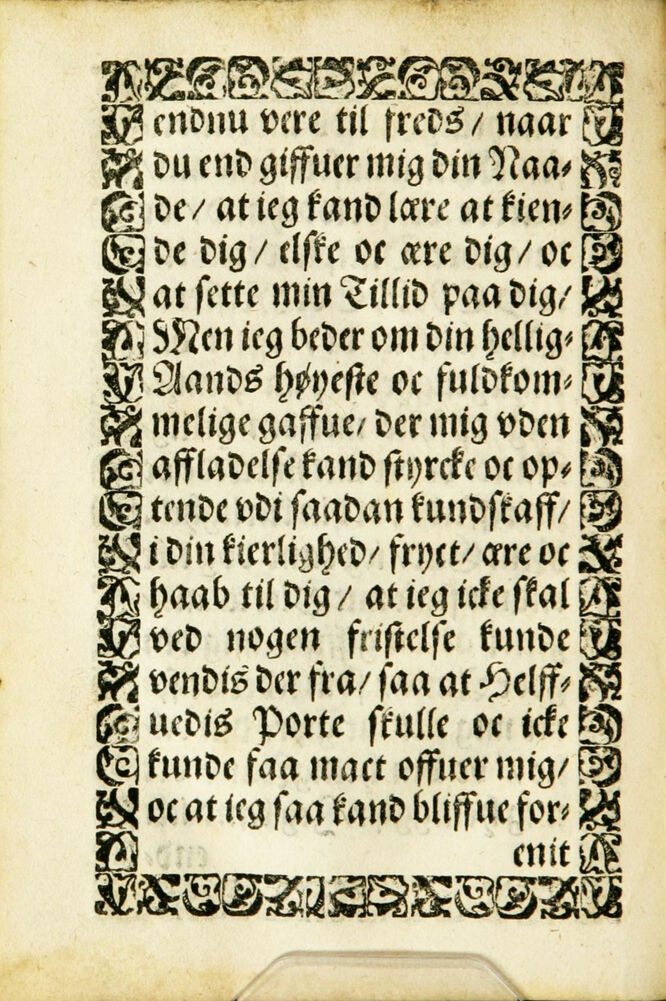 endnu vere til freds/ naar
du end giffuer mig din Naa⸗
de/ at ieg kand lære at kien⸗
de dig/ elske oc ære dig/ oc
at sette min Tillid paa dig/
Men ieg beder om din hellig⸗
Aands høyeste oc fuldkom⸗
melige gaffue/ der mig vden
affladelse kand styrcke oc op⸗
tende vdi saadan kundskaff/
i din kierlighed/ fryct/ ære oc
haab til dig/ at ieg icke skal
ved nogen fristelse kunde
vendis der fra/ saa at Helff⸗
uedis Porte skulle oc icke
kunde faa mact offuer mig/
oc at ieg saa kand bliffue for⸗
enit